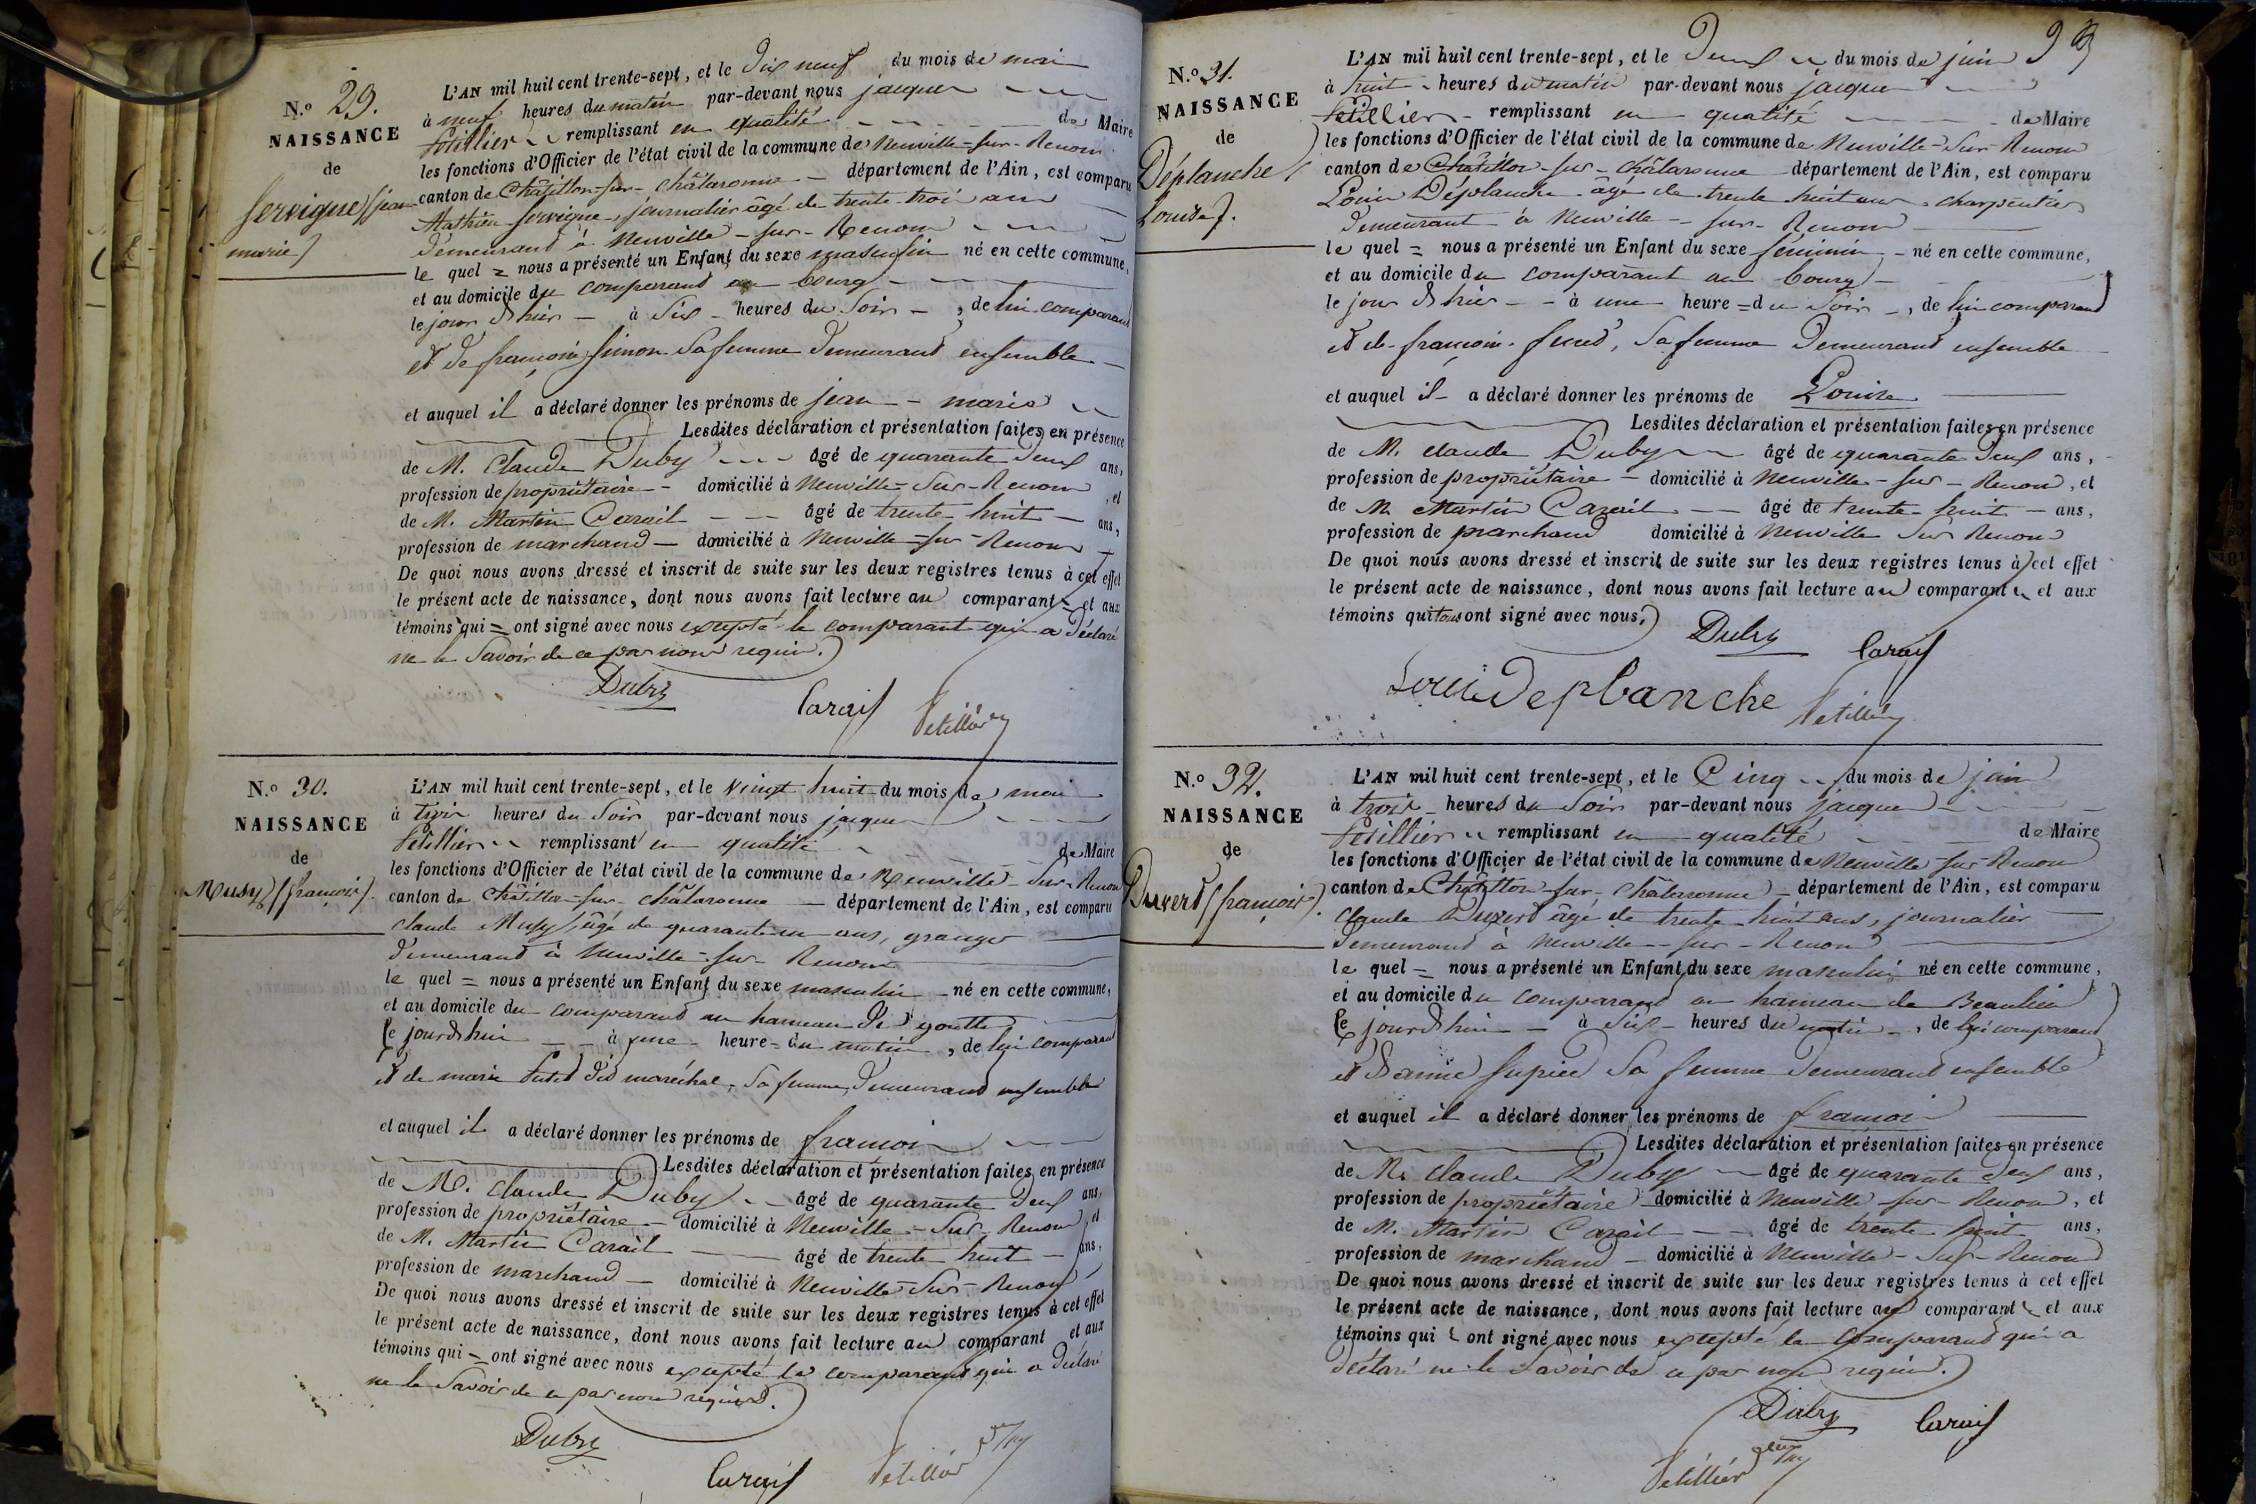 N.º 29.
NAISSANCE
de
Servigne (jean
marie)
L'AN mil huit cent trente-sept, et le Dix neuf du mois de mai
à neuf heures du matin par-devant nous jacques
Petillier remplissant en qualité de Maire
les fonctions d'Officier de l'état civil de la commune de Neuville-sur-Renom
canton de Châtillon-sur-Châlaronne département de l'Ain, est comparu
Mathieu Servigne, journalier âgé de trente-trois ans
demeurand à Neuville-sur-Renom
le quel = nous a présenté un Enfant du sexe masculin né en cette commune,
et au domicile du comparand au bourg
le jour d'hier à Six heures du Soir, de lui comparand
et de françoise Simon Sa femme demeurand ensemble
et auquel il a déclaré donner les prénoms de jean-marie
Lesdites déclaration et présentation faites en présence
de M. Claude Duby âgé de quarante deux ans,
profession de propriétaire domicilié à Neuville-Sur-Renom, et
de M. Martin Carail âgé de trente-huit ans,
profession de marchand domicilié à Neuville-sur-Renom
De quoi nous avons dressé et inscrit de suite sur les deux registres tenus à cet effet
le présent acte de naissance, dont nous avons fait lecture au comparant et aux
témoins qui = ont signé avec nous excepté le comparant qui a déclaré
ne le Savoir de ce par nous requis.
Duby
Carail
Petillier
N.º 30.
NAISSANCE
de
Musy (françois).
L'AN mil huit cent trente-sept, et le vingt huit du mois de mai
à trois heures du Soir par-devant nous jacques
Petillier remplissant en qualité de Maire
les fonctions d'Officier de l'état civil de la commune de Neuville-Sur-Renom
canton de Châtillon-sur-Châlaronne département de l'Ain, est comparu
claude Musy, âgé de quarante un ans, granger
demeurand à Neuville-sur-Renom
le quel = nous a présenté un Enfant du sexe masculin né en cette commune,
et au domicile du comparand au hameau de goutte
le jourd'hui à une heure = du matin, de lui comparand
et de marie dit maréchal, Sa femme, demeurand ensemble
et auquel il a déclaré donner les prénoms de françois
Lesdites déclaration et présentation faites en présence
de M. Claude Duby âgé de quarante deux ans,
profession de propriétaire domicilié à Neuville-Sur-Renom, et
de M. Martin Carail âgé de trente-huit ans,
profession de marchand domicilié à Neuville-Sur-Renom
De quoi nous avons dressé et inscrit de suite sur les deux registres tenus à cet effet
le présent acte de naissance, dont nous avons fait lecture au comparant et aux
témoins qui = ont signé avec nous excepté le comparand qui a déclaré
ne le Savoir de ce par nous requis.
Duby
Carail
Petillier
N.º 31.
NAISSANCE
de
Déplanche (
Louise).
L'AN mil huit cent trente-sept, et le Deux du mois de juin
à huit heures du matin par-devant nous jacques
Petillier remplissant en qualité de Maire
les fonctions d'Officier de l'état civil de la commune de Neuville-Sur-Renom
canton de Châtillon-sur-Châlaronne département de l'Ain, est comparu
Louis Déplanche âgé de trente huit ans charpentier
demeurant à Neuville-sur-Renom
le quel = nous a présenté un Enfant du sexe féminin né en cette commune,
et au domicile du comparant au bourg
le jour d'hier à une heure = du Soir, de lui comparand
et de françoise, Sa femme demeurand ensemble
et auquel il a déclaré donner les prénoms de Louise
Lesdites déclaration et présentation faites en présence
de M. claude Duby âgé de quarante deux ans,
profession de propriétaire domicilié à Neuville-sur-Renom, et
de M. Martin Carail âgé de trente-huit ans,
profession de marchand domicilié à Neuville Sur Renom
De quoi nous avons dressé et inscrit de suite sur les deux registres tenus à cet effet
le présent acte de naissance, dont nous avons fait lecture au comparant et aux
témoins qui tous ont signé avec nous.
Duby
Carail
Loui Deplanche
Petillier
N.º 32.
NAISSANCE
de
Duverd (françois).
L'AN mil huit cent trente-sept, et le Cinq du mois de juin
à trois heures du Soir par-devant nous jacques
Petillier remplissant en qualité de Maire
les fonctions d'Officier de l'état civil de la commune de Neuville-sur-Renom
canton de Châtillon-sur-Châlaronne département de l'Ain, est comparu
Claude Duverd âgé de trente huit ans, journalier
demeurand à Neuville-sur-Renom
le quel = nous a présenté un Enfant du sexe masculin né en cette commune,
et au domicile du comparand au hameau de Beaulieu
le jourd'hui à Six heures du matin, de lui comparand
et d'anne Sa femme demeurand ensemble
et auquel il a déclaré donner les prénoms de françois
Lesdites déclaration et présentation faites en présence
de M. claude Duby âgé de quarante deux ans,
profession de propriétaire domicilié à Neuville-sur-Renom, et
de M. Martin Carail âgé de trente huit ans,
profession de marchand domicilié à Neuville-Sur-Renom
De quoi nous avons dressé et inscrit de suite sur les deux registres tenus à cet effet
le présent acte de naissance, dont nous avons fait lecture au comparant et aux
témoins qui ont signé avec nous excepté le comparand qui a
déclaré ne le Savoir de ce par nous requis.
Duby
Carail
Petillier